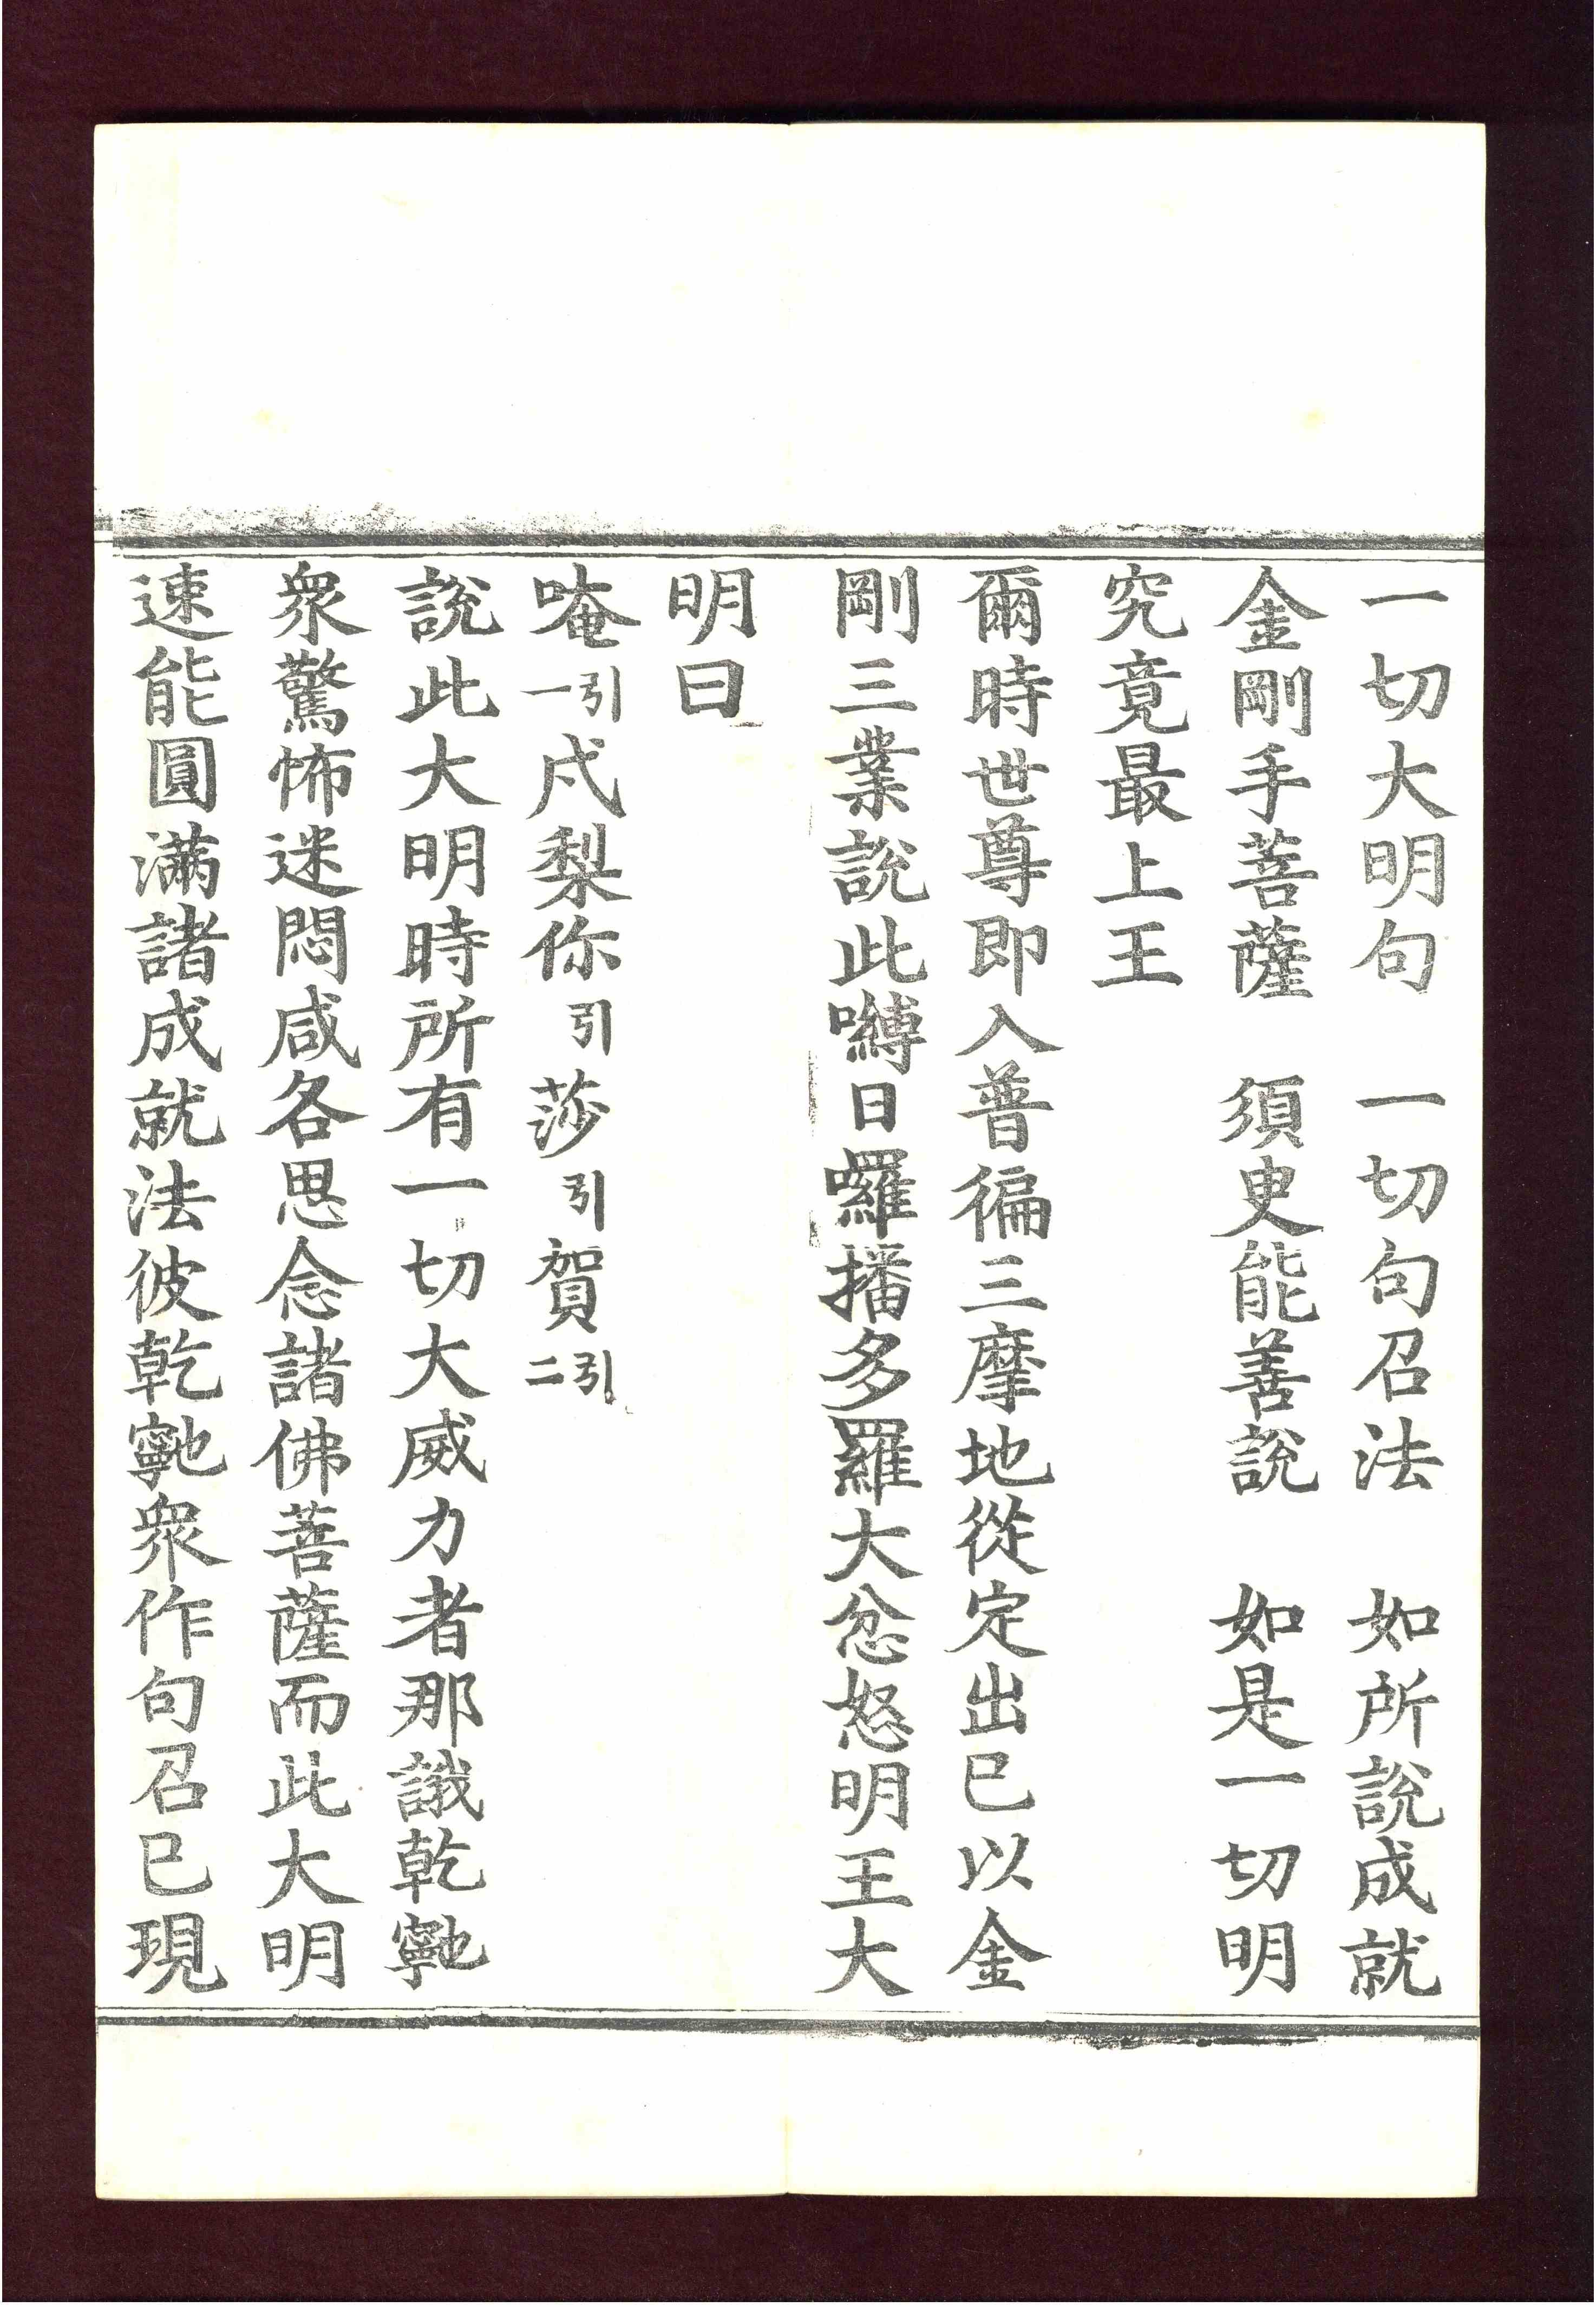 一切大明句　一切句召法　如所說成就
金剛手菩薩　須臾能善說　如是一切明
究竟最上王
爾時世尊即入普徧三摩地從定出已以金
剛三業說此嚩日囉播多羅大忿怒明王大
明曰
唵引一戍梨你引莎引賀引二
說此大明時所有一切大威力者那誐乾𩕳
衆驚怖迷悶咸各思念諸佛菩薩而此大明
速能圓滿諸成就法彼乾𩕳衆作句召已現